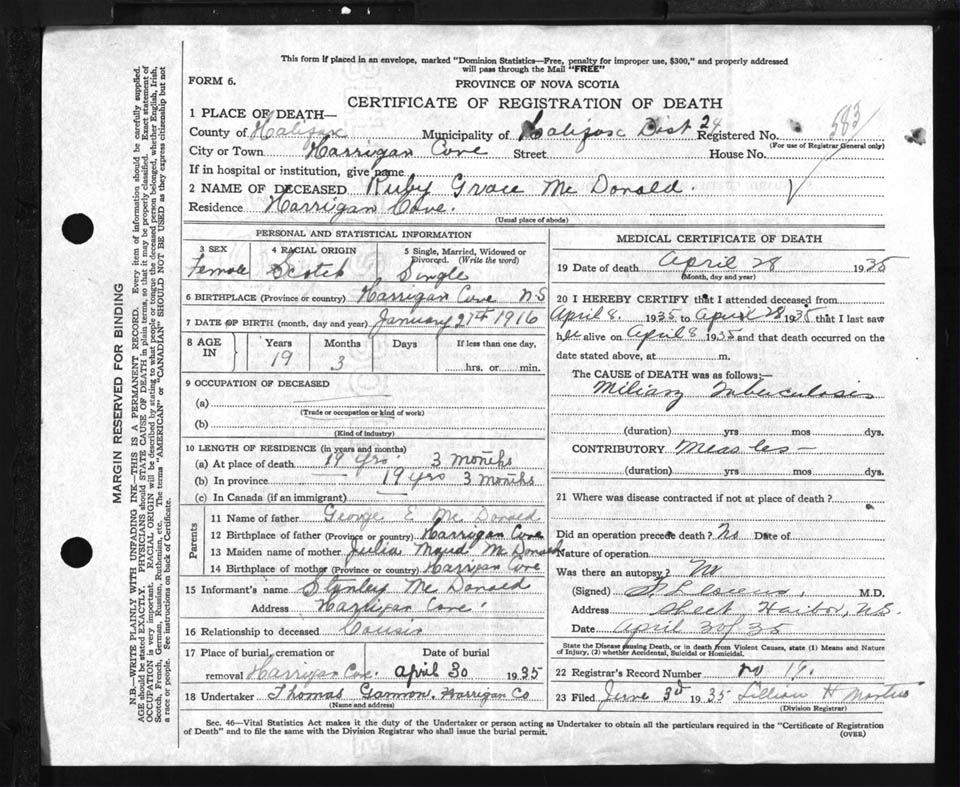 This form if placed in an envelope, marked "Dominion Statistics—Free, penalty for improper use, $300," and properly addressed
will pass through the Mail "FREE"
FORM 6.
PROVINCE OF NOVA SCOTIA
CERTIFICATE OF REGISTRATION OF DEATH
1 PLACE OF DEATH—
County of Halifax Municipality of Halifax Dist 24 Registered No. 583
(For use of Registrar General only)
City or Town Harrigan Cove Street House No.
If in hospital or institution, give name
2 NAME OF DECEASED Ruby Grace Mc Donald.
Residence Harrigan Cove.
(Usual place of abode)
PERSONAL AND STATISTICAL INFORMATION
3 SEX Female
4 RACIAL ORIGIN Scotch
5 Single, Married, Widowed or Divorced. (Write the word) Single
6 BIRTHPLACE (Province or country) Harrigan Cove N S
7 DATE OF BIRTH (month, day and year) January 27th 1916
8 AGE IN Years 19 Months 3 Days If less than one day, hrs. or min.
9 OCCUPATION OF DECEASED
(a)
(Trade or occupation or kind of work)
(b)
(Kind of industry)
10 LENGTH OF RESIDENCE (in years and months)
(a) At place of death 19 yrs 3 months
(b) In province 19 yrs 3 months
(c) In Canada (if an immigrant)
Parents
11 Name of father George E Mc Donald
12 Birthplace of father (Province or country) Harrigan Cove
13 Maiden name of mother Julia Maud Mc Donald
14 Birthplace of mother (Province or country) Harrigan Cove
15 Informant's name Stanley Mc Donald
Address Harrigan Cove
16 Relationship to deceased Cousin
17 Place of burial, cremation or
removal Harrigan Cove April 30 1935
18 Undertaker Thomas Gammon, Harrigan Co
(Name and address)
MEDICAL CERTIFICATE OF DEATH
19 Date of death April 28 1935
(Month, day and year)
20 I HEREBY CERTIFY that I attended deceased from
April 8. 1935 to April 28 1935 that I last saw
her alive on April 8 1935 and that death occurred on the
date stated above, at m.
The CAUSE OF DEATH was as follows:—
Miliary Tuberculosis
(duration) yrs mos dys.
CONTRIBUTORY Measles—
(duration) yrs mos dys.
21 Where was disease contracted if not at place of death?
Did an operation precede death? No Date of
Nature of operation
Was there an autopsy? No
(Signed) M.D.
Address Sheet Harbor, N.S.
Date April 30/35
State the Disease causing Death, or in death from Violent Causes, state (1) Means and Nature
of Injury, (2) whether Accidental, Suicidal or Homicidal.
22 Registrar's Record Number no
23 Filed June 3rd 1935 Lillian H
(Division Registrar)
Sec. 46—Vital Statistics Act makes it the duty of the Undertaker or person acting as Undertaker to obtain all the particulars required in the "Certificate of Registration
of Death" and to file the same with the Division Registrar who shall issue the burial permit.
(OVER)
MARGIN RESERVED FOR BINDING
N.B.—WRITE PLAINLY WITH UNFADING INK—THIS IS A PERMANENT RECORD. Every item of information should be carefully supplied.
AGE should be stated EXACTLY. PHYSICIANS should STATE CAUSE OF DEATH in plain terms, so that it may be properly classified. Exact statement of
OCCUPATION is very important. RACIAL ORIGIN will be described by stating to what people or tongue the deceased person belonged, whether English, Irish,
Scotch, French, German, Russian, Ruthenian, etc. The terms "AMERICAN" or "CANADIAN" SHOULD NOT BE USED as they express citizenship but not
a race or people. See instructions on back of Certificate.